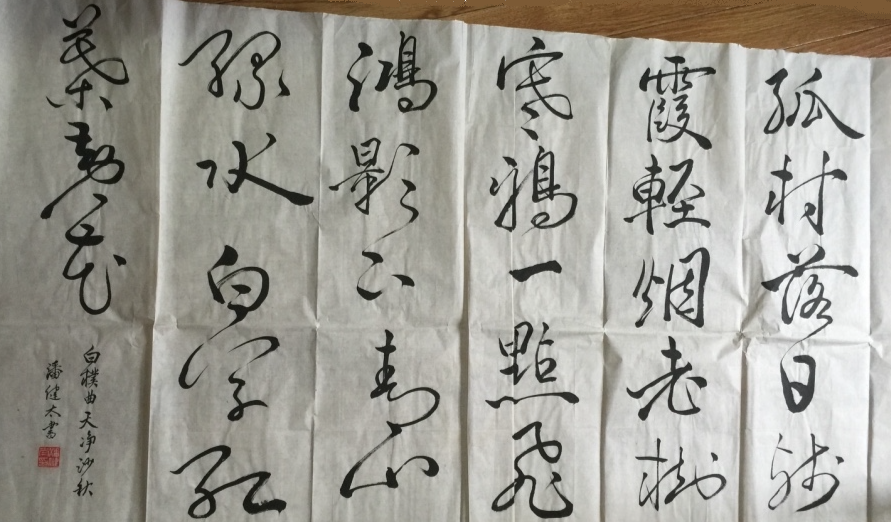 孤村落日残
霞輕烟老樹
寒鴉一點飛
鴻影下青山
綠水白草紅
葉黄花
白樸曲天净沙秋
潘健太書